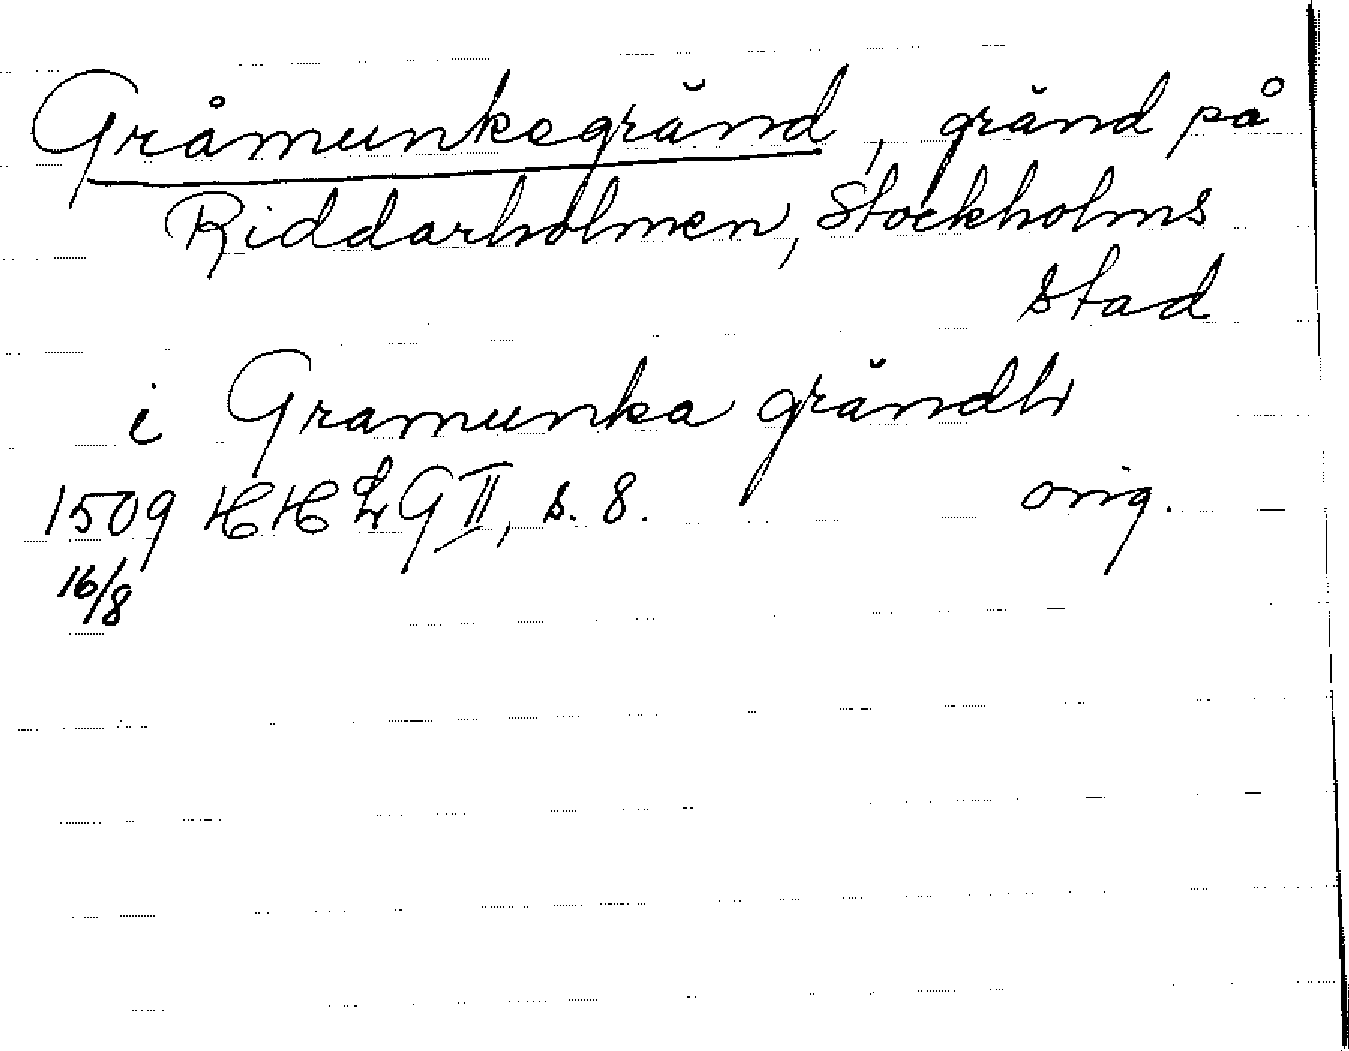 Gråmunkegränd, gränd på
Riddarholmen, Stockholms
stad
i Gramunka grändh
1509 HH
G II, s. 8. orig.
16/8